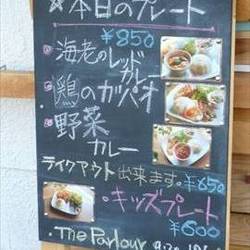 ☆本日のプレート
¥850
海老のレッド
カレー
鶏のガパオ
野菜
カレー
テイクアウト出来ます。¥650
キッズプレート
¥600
The Parlour